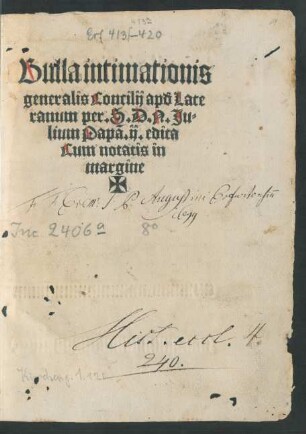 Erf 413f-420
Bulla intimationis
generalis Concilij apd Late
ranum per. S. D. N. Ju-
lium Papã. ij. edica
Cum notatis in
margine
Augustini
Inc 2406a 8°
Hist. eccl. 4.
240.